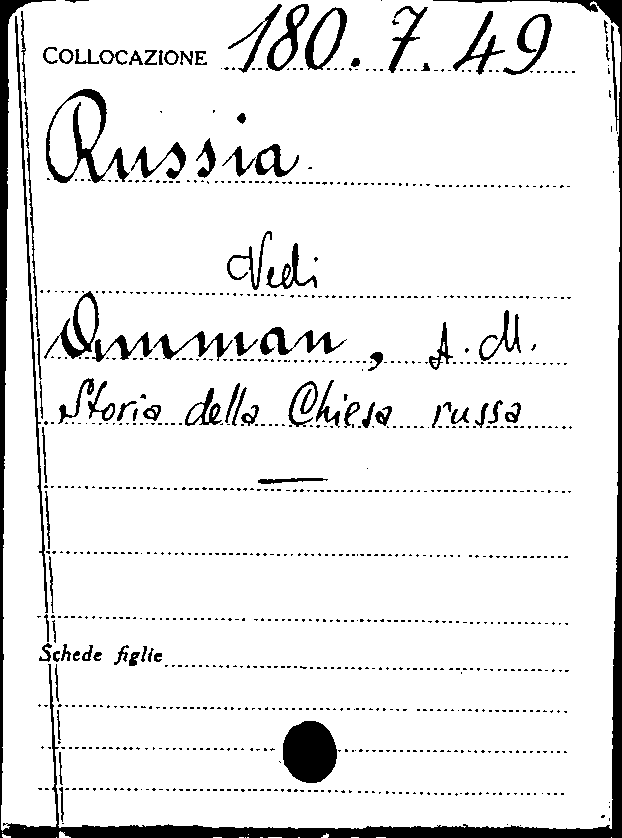 COLLOCAZIONE 180.7.49
Russia
Vedi
Ammman, A.M.
Storia della Chiesa russa
Schede figlie